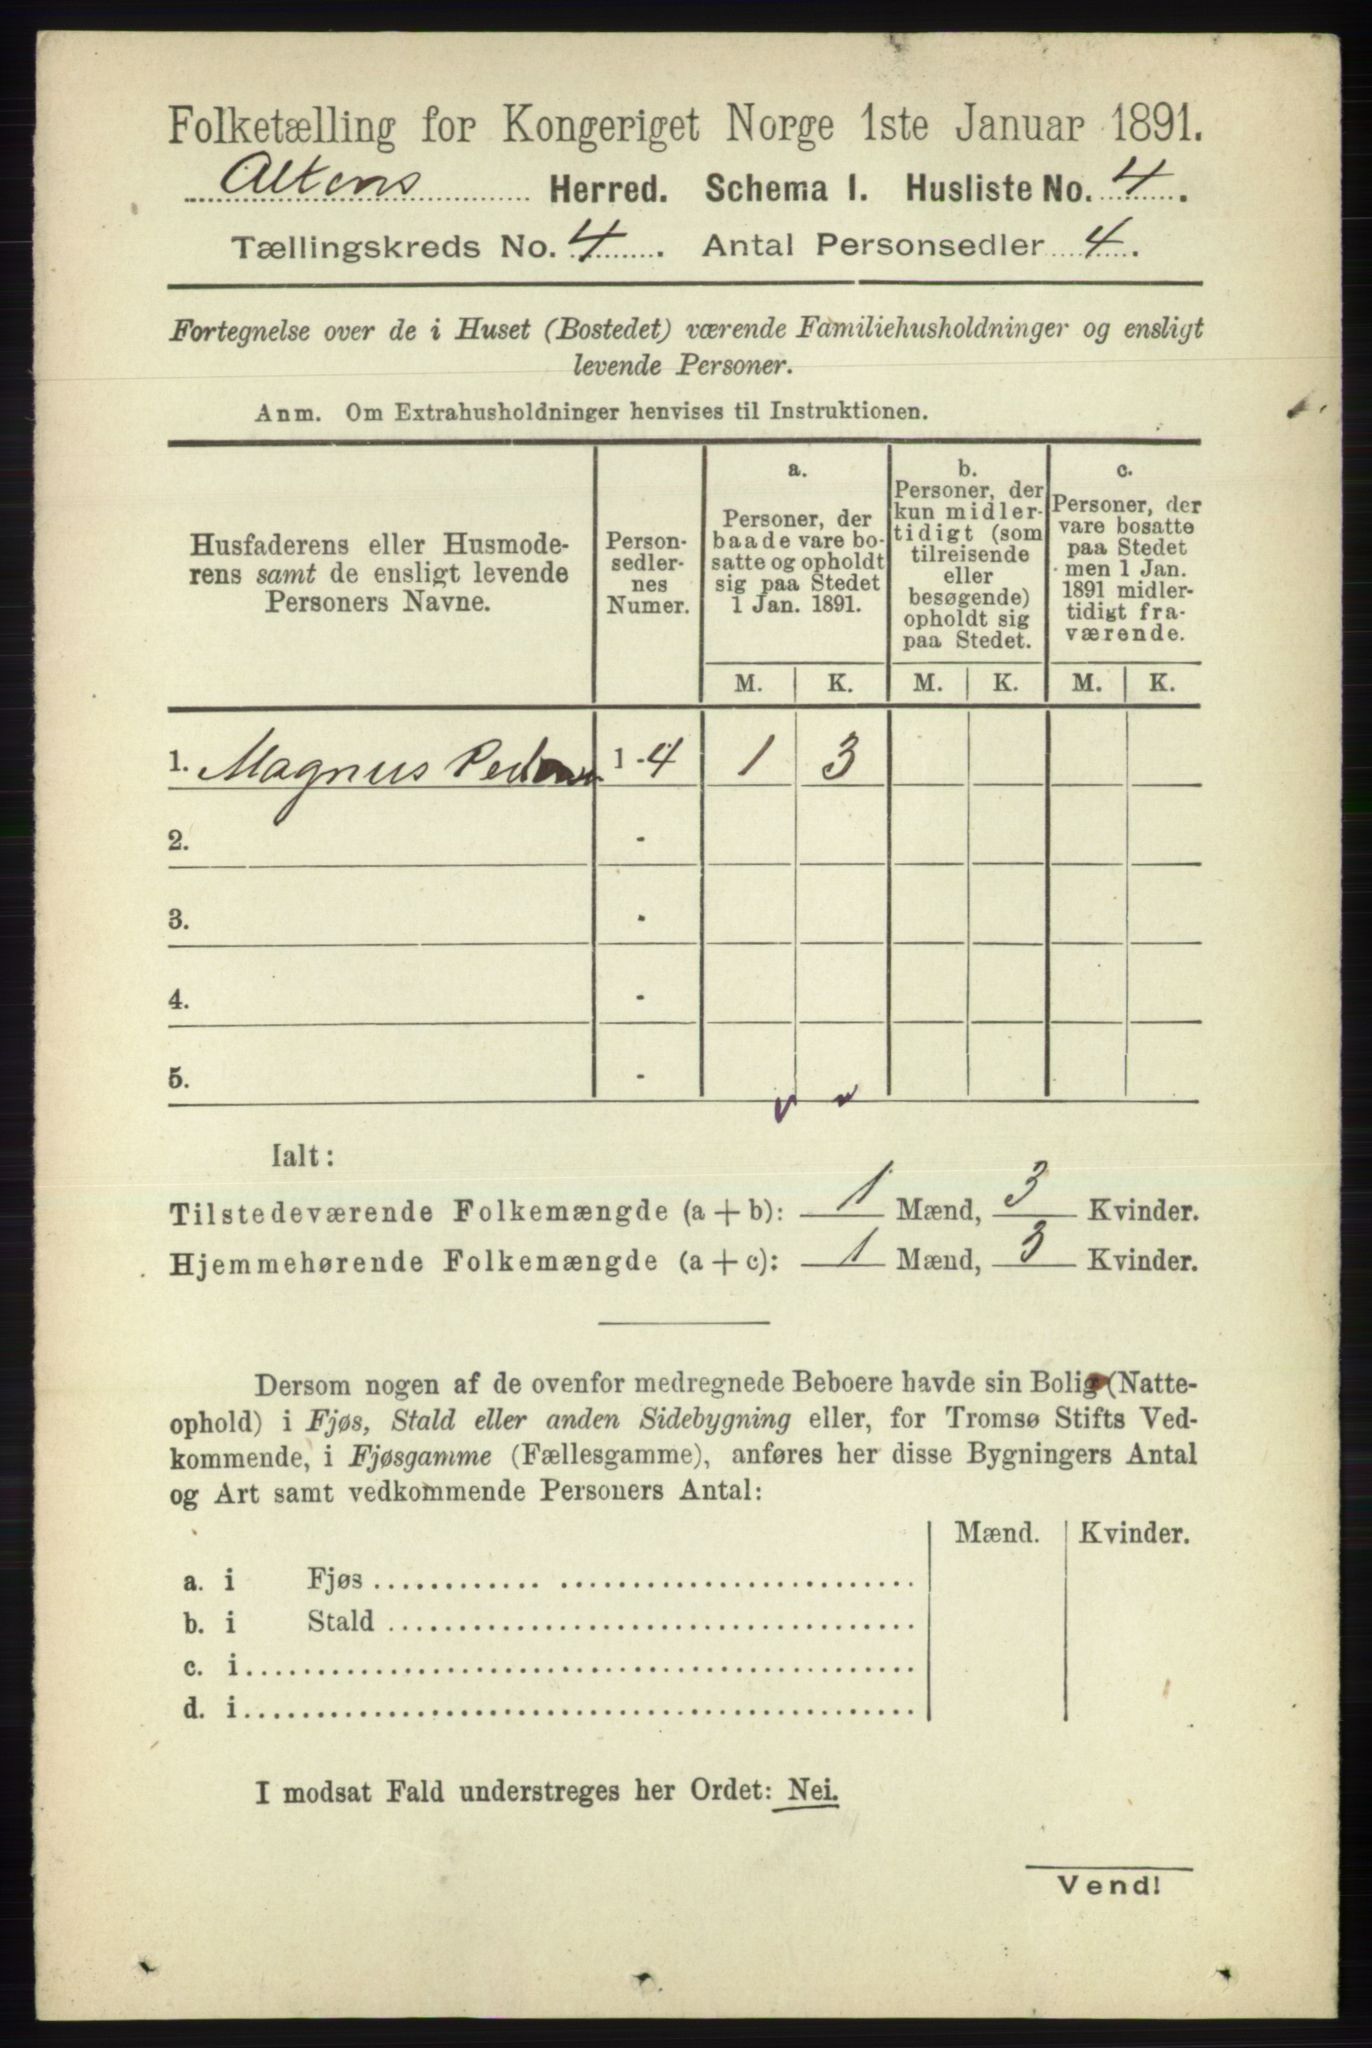 Folketælling for Kongeriget Norge 1ste Januar 1891.
Altens Herred. Schema I. Husliste No. 4.
Tællingskreds No. 4. Antal Personsedler 4.
Fortegnelse over de i Huset (Bostedet) værende Familiehusholdninger og ensligt
levende Personer.
Anm. Om Extrahusholdninger henvises til Instruktionen.
Husfaderens eller Husmode-
rens samt de ensligt levende
Personers Navne.
Person-
sedler-
nes
Numer.
a.
Personer, der
baade vare bo-
satte og opholdt
sig paa Stedet
1 Jan. 1891.
b.
Personer, der
kun midler-
tidigt (som
tilreisende
eller
besøgende)
opholdt sig
paa Stedet.
c.
Personer, der
vare bosatte
paa Stedet
men 1 Jan.
1891 midler-
tidigt fra-
værende.
M. K. M. K. M. K.
1. Magnus 1-4 1 3
2. -
3. -
4. -
5. -
Ialt:
Tilstedeværende Folkemængde (a + b): 1 Mænd, 3 Kvinder.
Hjemmehørende Folkemængde (a + c): 1 Mænd, 3 Kvinder.
Dersom nogen af de ovenfor medregnede Beboere havde sin Bolig (Natte-
ophold) i Fjøs, Stald eller anden Sidebygning eller, for Tromsø Stifts Ved-
kommende, i Fjøsgamme (Fællesgamme), anføres her disse Bygningers Antal
og Art samt vedkommende Personers Antal:
Mænd. Kvinder.
a. i Fjøs
b. i Stald
c. i
d. i
I modsat Fald understreges her Ordet: Nei.
Vend!